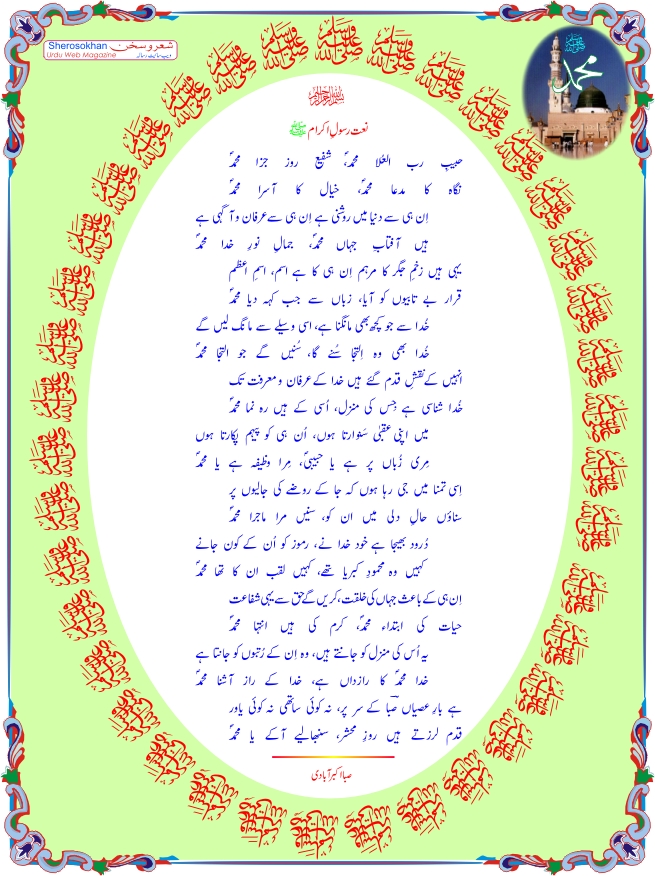 Sherosokhan شعر و سخن
Urdu Web Magazine ویب سائیٹ رسالہ
محمد ﷺ
بسم اللہ الرحمن الرحیم
نعت رسولِ اکرام ﷺ
حبیبِ رب العُلا محمدؐ، شفیع روز جزا محمدؐ
نگاہ کا مدعا محمدؐ، خیال کا آسرا محمدؐ
اِن ہی سے دنیا میں روشنی ہے اِن ہی سے عرفان و آگہی ہے
ہیں آفتابِ جہاں محمدؐ، جمالِ نورِ خدا محمدؐ
یہی ہیں زخمِ جگر کا مرہم اِن ہی کا ہے اسم، اسمِ اعظم
قرار بے تابیوں کو آیا، زباں سے جب کہہ دیا محمدؐ
خُدا سے جو کچھ بھی مانگنا ہے، اسی وسیلے سے مانگ لیں گے
خُدا بھی وہ اِلتجا سُنے گا، سُنیں گے جو التجا محمدؐ
انہیں کے نقشِ قدم گئے ہیں خدا کے عرفان و معرفت تک
خُدا شناسی ہے جِس کی منزل، اُسی کے ہیں رہ نما محمدؐ
میں اپنی عقبیٰ سَنوارتا ہوں، اُن ہی کو پیہم پکارتا ہوں
مِری زُباں پر ہے یا حبیبیؐ، مِرا وظیفہ ہے یا محمدؐ
اِسی تمنا میں جی رہا ہوں کہ جا کے روضے کی جالیوں پر
سناؤں حالِ دلی میں ان کو، سنیں مرا ماجرا محمدؐ
دُرود بھیجا ہے خود خدا نے، رموز کو اُن کے کون جانے
کہیں وہ محمودِ کبریا تھے، کہیں لقب ان کا تھا محمدؐ
اِن ہی کے باعث جہاں کی خلقت، کریں گے حق سے یہی شفاعت
حیات کی ابتداء محمدؐ، کرم کی ہیں انتہا محمدؐ
یہ اُس کی منزل کو جانتے ہیں، وہ اِن کے رُتبوں کو جانتا ہے
خدا محمدؐ کا رازداں ہے، خدا کے راز آشنا محمدؐ
ہے بارِ عصیاں صباؔ کے سر پر، نہ کوئی ساتھی نہ کوئی یاور
قدم لرزتے ہیں روزِ محشر، سنبھالیے آ کے یا محمدؐ
صبا اکبر آبادی